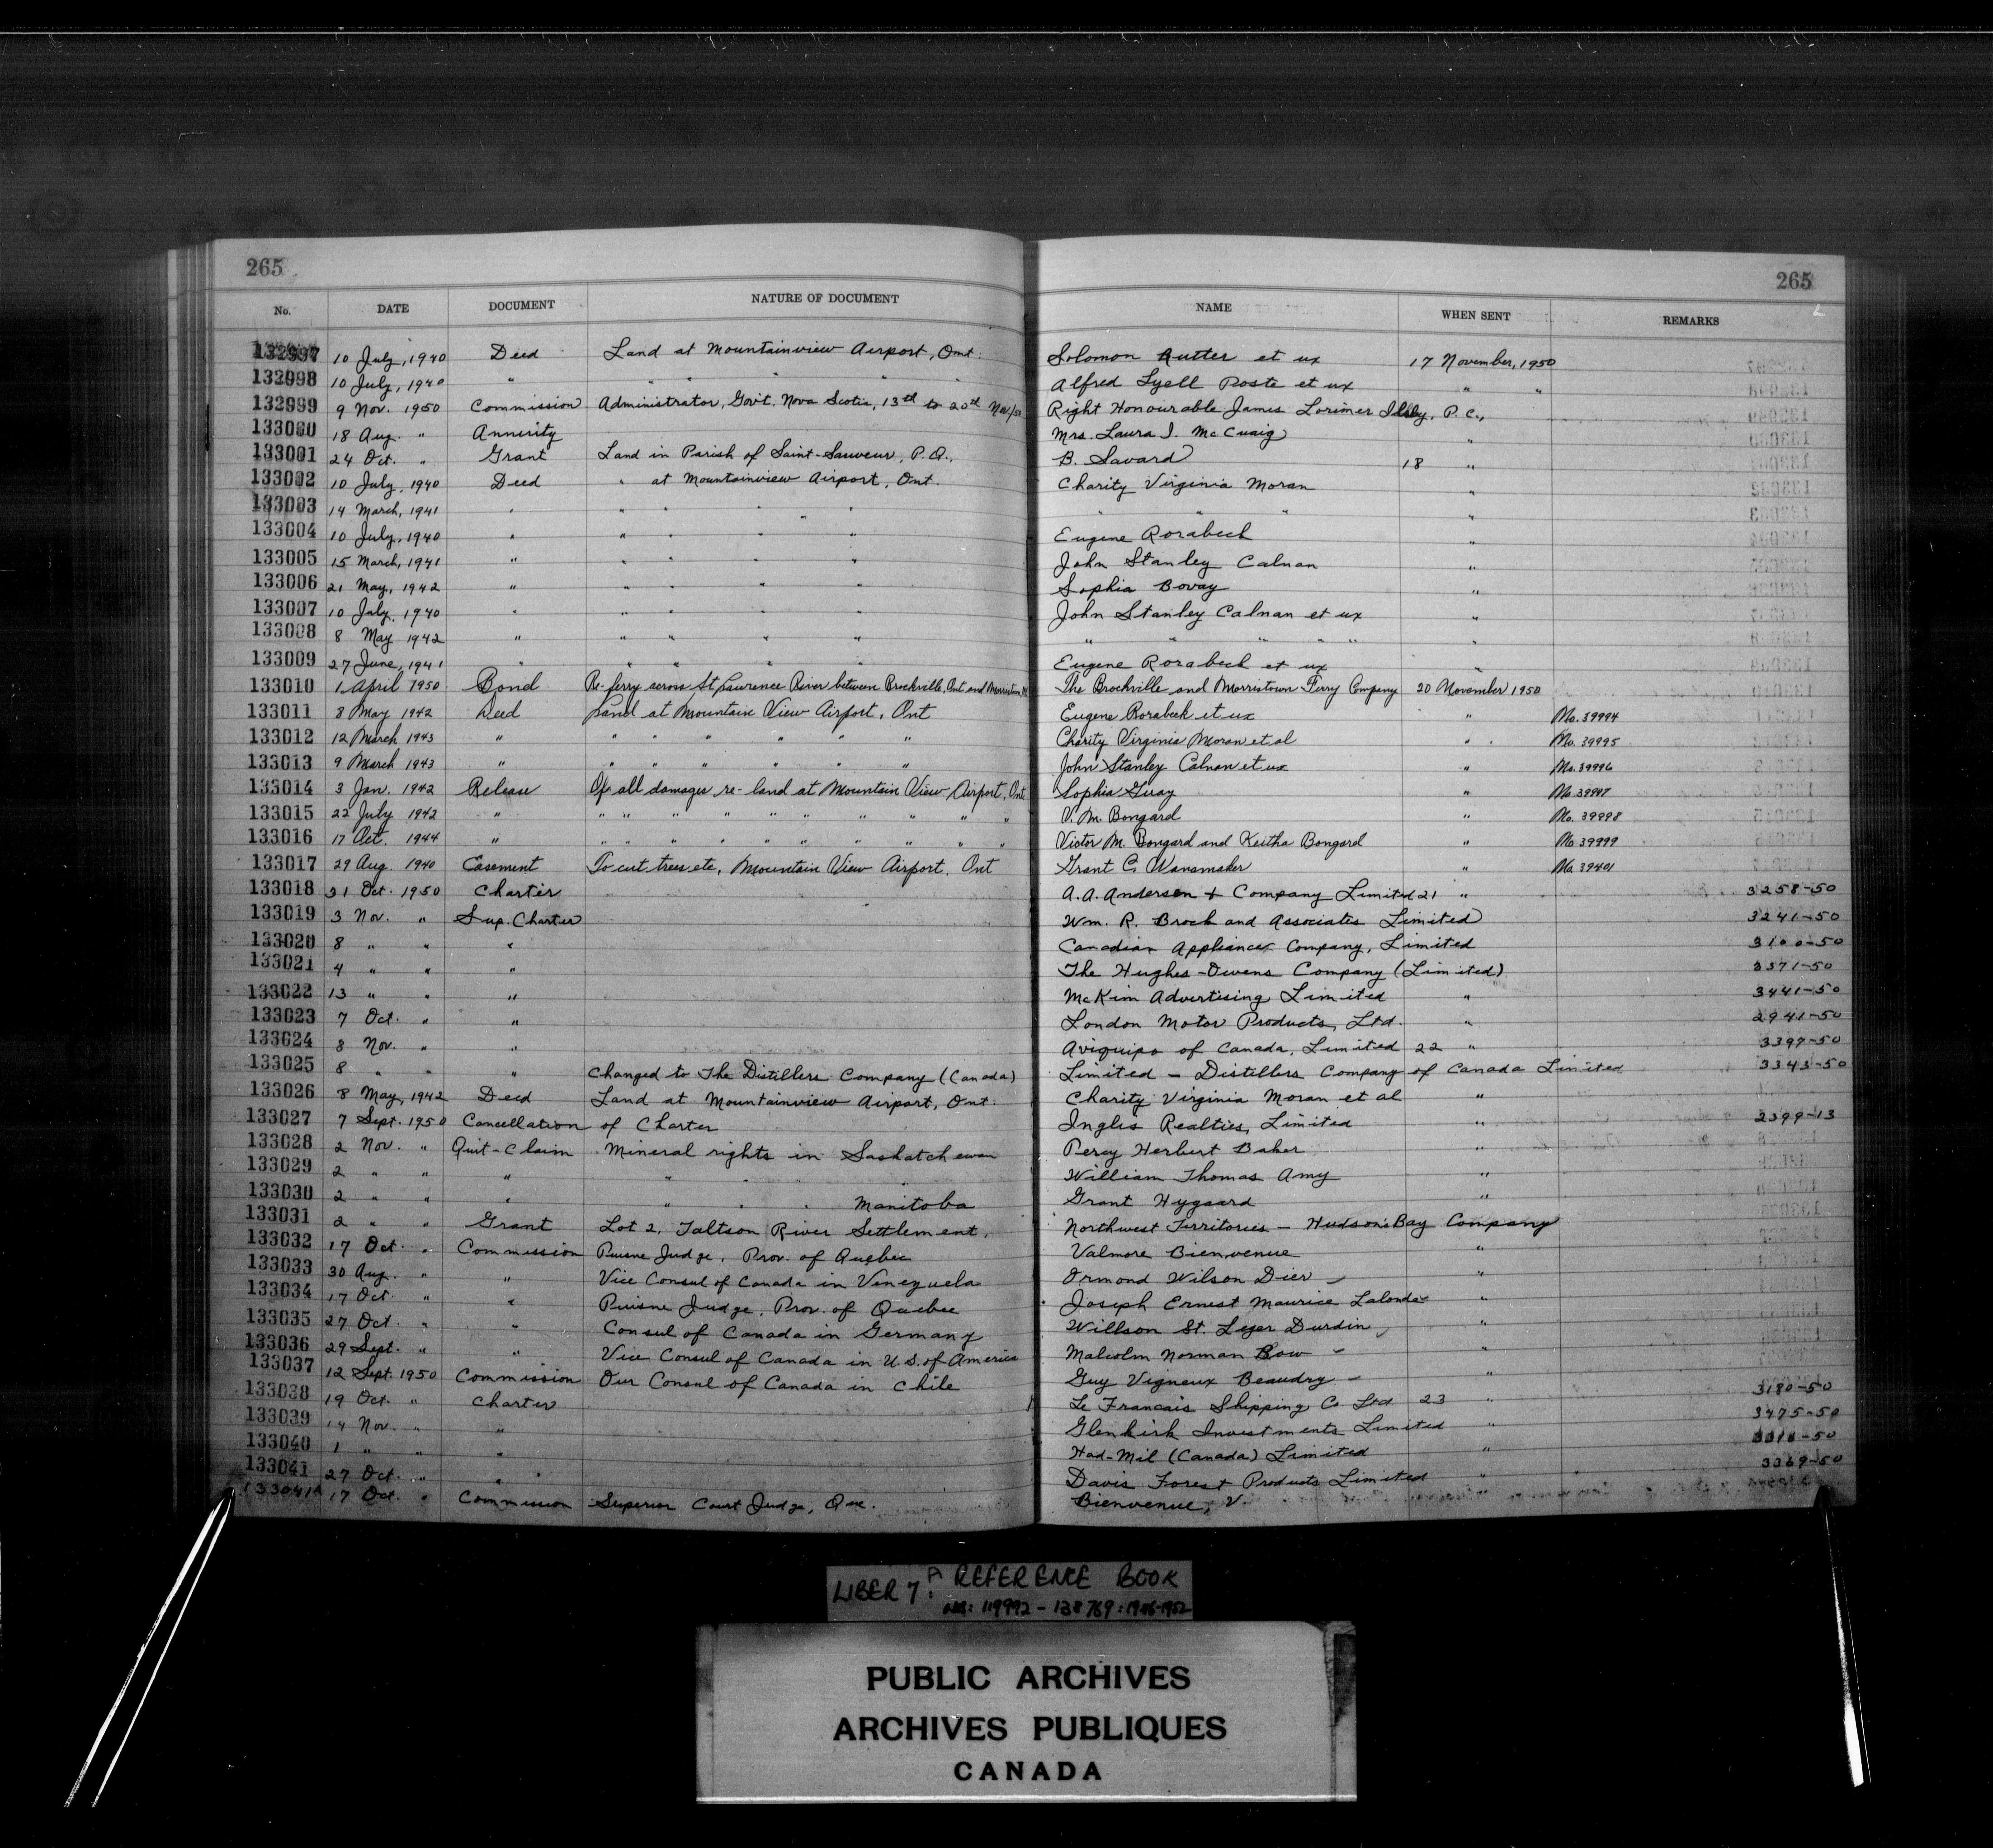 265 265
No. DATE DOCUMENT NATURE OF DOCUMENT NAME WHEN SENT REMARKS
132997 10 July, 1940 Deed Land at Mountainview Airport, Ont. Solomon Rutter et ux 17 November, 1950
132998 10 July, 1940 " " " " " Alfred Lyell Poste et ux " "
132999 9 Nov. 1950 Commission Administrator, Gov't. Nova Scotia, 13th to 20th Nov/50 Right Honourable James Lorimer Ilsley, P.C.,
133000 18 Aug. " Annuity Mrs. Laura I. McCuaig "
133001 24 Oct. " Grant Land in Parish of Saint-Sauveur, P.Q., B. Savard 18 "
133002 10 July, 1940 Deed " at Mountainview Airport, Ont. Charity Virginia Moran "
133003 14 March, 1941 " " " " " " " " "
133004 10 July, 1940 " " " " " Eugene Rorabeck "
133005 15 March, 1941 " " " " " John Stanley Calnan "
133006 21 May, 1942 " " " " " Sophia Bovay "
133007 10 July, 1940 " " " " " John Stanley Calnan et ux "
133008 8 May 1942 " " " " " " " " " " "
133009 27 June, 1941 " " " " " Eugene Rorabeck et ux "
133010 1 April 1950 Bond Re-ferry across St Lawrence River between Brockville, Ont and Morristown, The Brockville and Morristown Ferry Company 20 November 1950
133011 8 May 1942 Deed Land at Mountain View Airport, Ont Eugene Rorabeck et ux " No. 39994
133012 12 March 1943 " " " " " " " Charity Virginia Moran et al " No. 39995
133013 9 March 1943 " " " " " " " John Stanley Calnan et ux " No. 39996
133014 3 Jan. 1942 Release Of all damages re-land at Mountain View Airport, Ont Sophia " No 39997
133015 22 July 1942 " " " " " " " " " " " V. M. Bongard " No. 39998
133016 17 Oct. 1944 " " " " " " " " " " " Victor M. Bongard and Keitha Bongard " No 39999
133017 29 Aug. 1940 Easement To cut trees etc, Mountain View Airport, Ont Grant C. Wanamaker " No. 39401
133018 31 Oct. 1950 Charter A. A. Andersen + Company Limited 21 " 3258-50
133019 3 Nov. " Sup. Charter Wm. R. Brock and Associates Limited 3241-50
133020 8 " " " Canadian Appliances Company, Limited 3100-50
133021 4 " " " The Hughes-Owens Company (Limited) 3371-50
133022 13 " " " McKim Advertising Limited " 3441-50
133023 7 Oct. " " London Motor Products, Ltd. " 2941-50
133024 8 Nov. " " Aviquipo of Canada, Limited 22 " 3397-50
133025 8 " " " Changed to The Distillers Company (Canada) Limited - Distillers Company of Canada Limited 3343-50
133026 8 May, 1942 Deed Land at Mountainview Airport, Ont. Charity Virginia Moran et al "
133027 7 Sept. 1950 Cancellation of Charter Inglis Realties, Limited " 2399-13
133028 2 Nov. " Quit-Claim Mineral rights in Saskatchewan Percy Herbert Baker "
133029 2 " " " " " " " William Thomas Amy "
133030 2 " " " " " " Manitoba Grant Hygaard "
133031 2 " " Grant Lot 2, Taltson River Settlement, Northwest Territories - Hudson's Bay Company
133032 17 Oct. " Commission Puisne Judge, Prov. of Quebec Valmore Bienvenue "
133033 30 Aug. " " Vice Consul of Canada in Venezuela Ormond Wilson Dier "
133034 17 Oct. " " Puisne Judge, Prov. of Quebec Joseph Ernest Maurice Lalonde "
133035 27 Oct. " " Consul of Canada in Germany Willson St. Leger Durdin "
133036 29 Sept. " " Vice Consul of Canada in U.S. of America Malcolm Norman Bow "
133037 12 Sept. 1950 Commission Our Consul of Canada in Chile Guy Vigneux Beaudry "
133038 19 Oct. " Charter Le Francais Shipping Co. Ltd 23 " 3180-50
133039 14 Nov. " " Glenkirk Investments Limited " 3475-50
133040 1 " " " Had-Mil (Canada) Limited "
133041 27 Oct. " " Davis Forest Products Limited " 3369-50
133041A 17 Oct. " Commission Superior Court Judge, Que. Bienvenue, V.
LIBER 7A: REFERENCE BOOK
NOS: 119992 - 138769: 1946-1952
PUBLIC ARCHIVES
ARCHIVES PUBLIQUES
CANADA